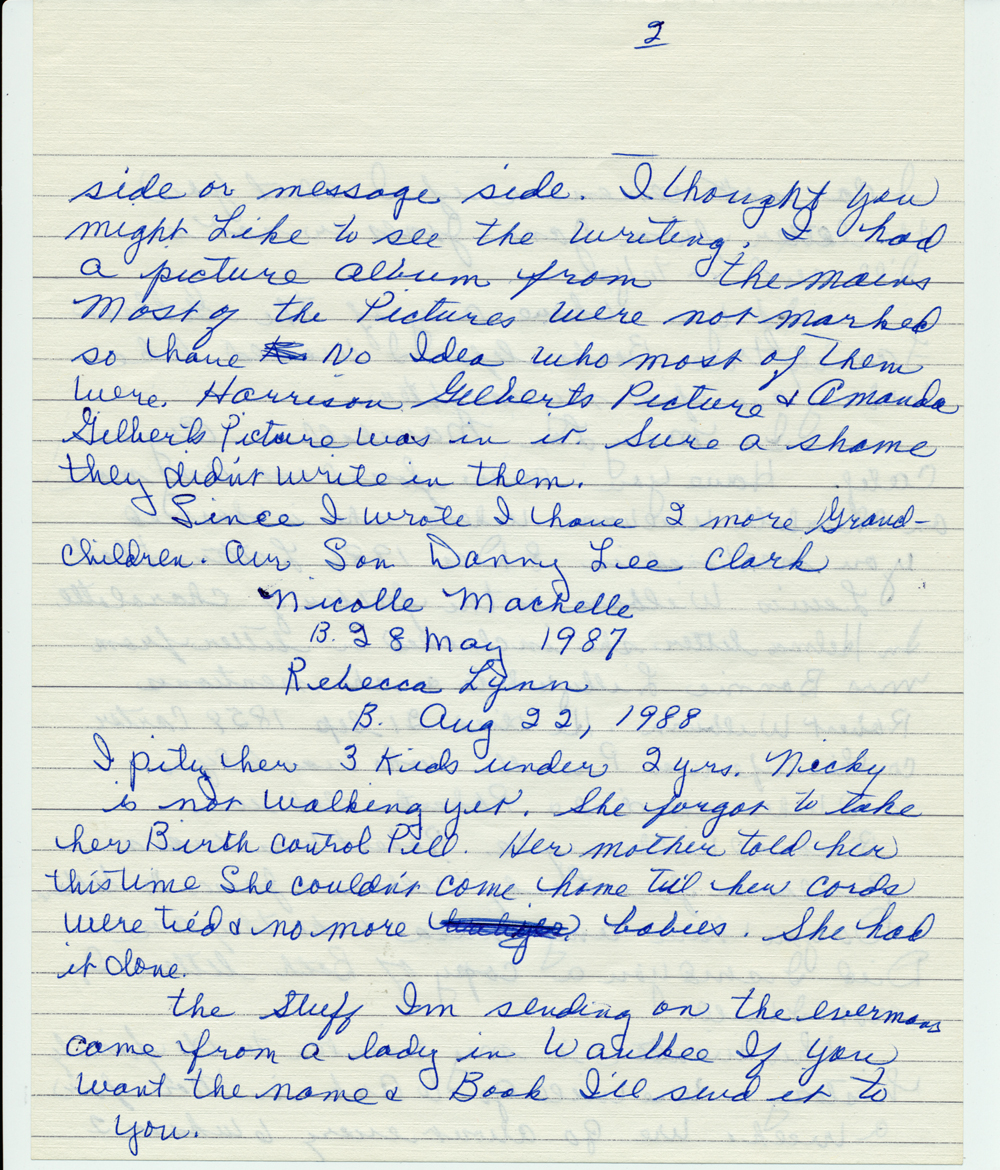 2
side or message side. I thought you
might Like to see the writing. I had
a picture album from the mains
Most of the Pictures were not marked
so have No Idea who most of them
were. Harrison Gilberts Picture & Amanda
Gilberts Picture was in it Sure a shame
they didn't write in them.
Since I wrote I have 2 more Grand-
children. Our Son Danny Lee Clark
Nicolle Machelle
B. 28 May 1987
Rebecca Lynn
B. Aug 22, 1988
I pity her 3 Kids under 2 yrs. Nicky
is not walking yet. She forgot to take
her Birth control Pill. Her mother told her
this time She couldn't come home till her cords
were tied & no more babies. She had
it done.
the Stuff Im sending on the evermans
came from a lady in Waukee If you
want the name & Book I'll send it to
you.